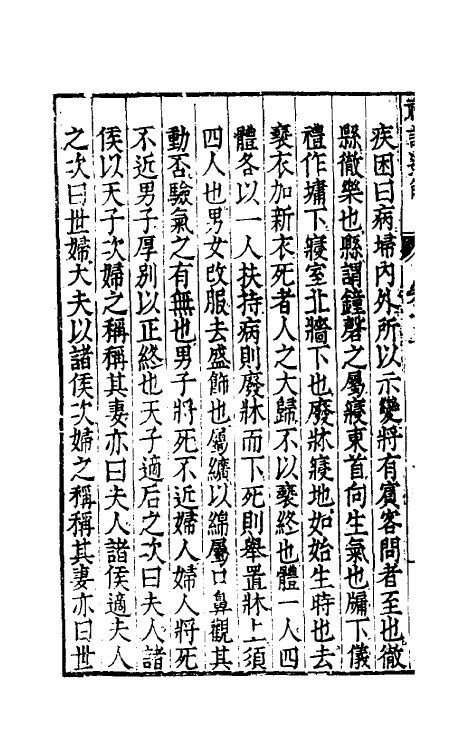 疾困曰病埽内外所以示變將有賓客問者至也徹
縣徹樂也縣謂鐘磬之屬寢東首向生氣也牖下儀
禮作墉下寢室北牆下也廢牀寢地如始生時也去
褻衣加新衣死者人之大歸不以褻終也體一人四
體各以一人扶持病則廢牀而下死則舉置牀上須
四人也男女改服去盛飾也屬纊以綿屬口鼻觀其
動否驗氣之有無也男子將死不近婦人婦人將死
不近男子厚别以正終也天子適后之次曰夫人諸
侯以天子次婦之稱稱其妻亦曰夫人諸侯適夫人
之次曰世婦大夫以諸侯次婦之稱稱其妻亦曰世